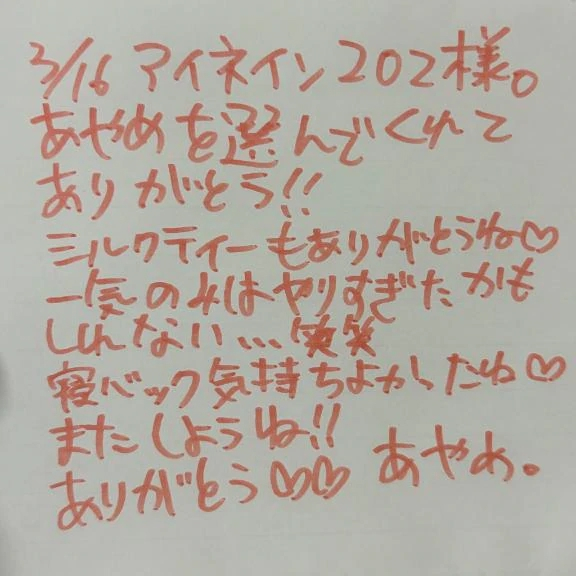 3/16 アイネイン202様。
あやめを選んでくれて
ありがとう!!
ミルクティーもありがとうね♡
一気のみはやりすぎたかも
しれない...笑笑
寝バック気持ちよかったね♡
またしようね!!
ありがとう♡♡ あやめ。